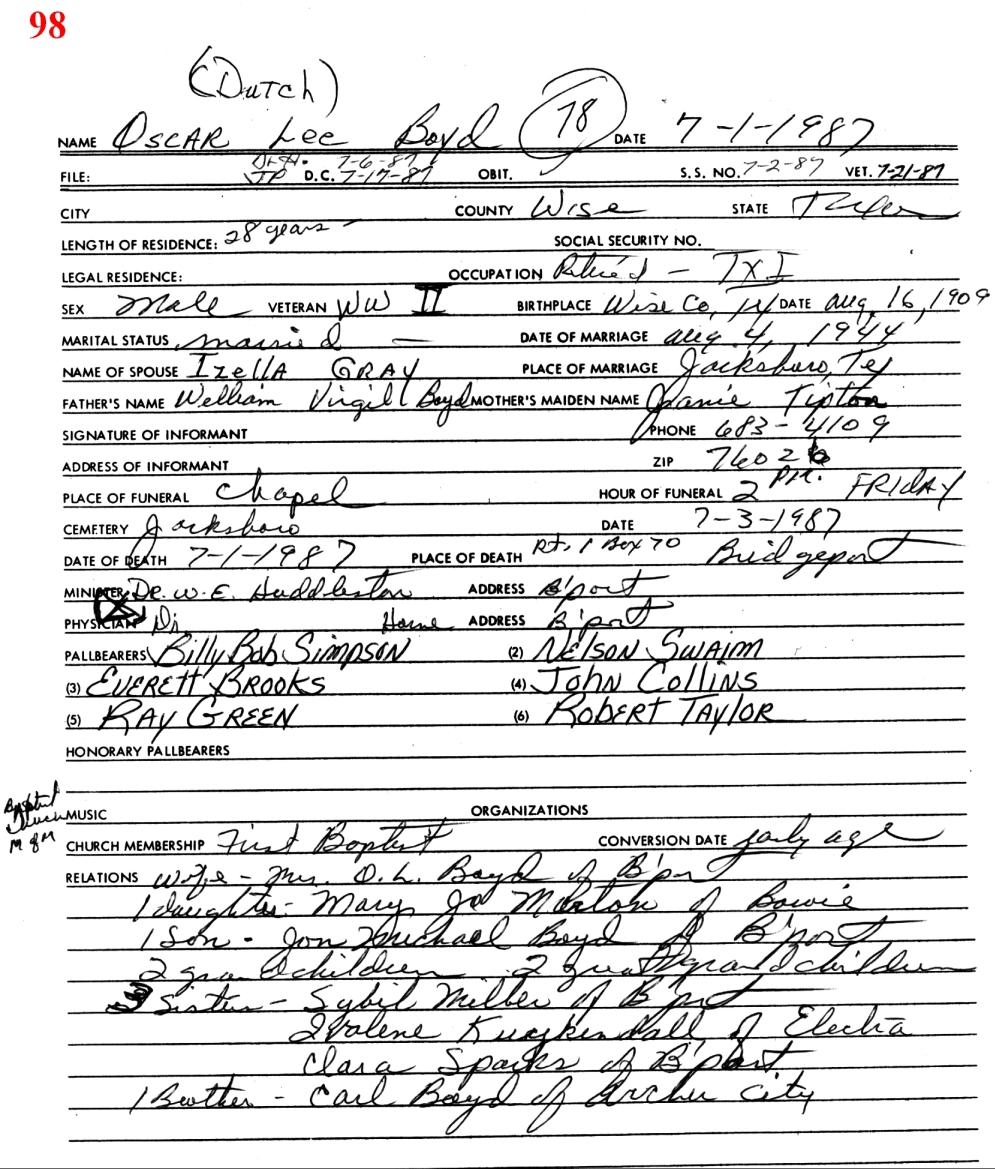 98
(Dutch)
NAME Oscar Lee Boyd 78 DATE 7-1-1987
7-6-87
FILE: JP D.C. 7-17-87 OBIT. S.S. NO. 7-2-87 VET. 7-21-87
CITY COUNTY Wise STATE Texas
LENGTH OF RESIDENCE: 28 years SOCIAL SECURITY NO.
LEGAL RESIDENCE: OCCUPATION Retired - TXI
SEX Male VETERAN WW II BIRTHPLACE Wise Co, TX DATE Aug 16, 1909
MARITAL STATUS married DATE OF MARRIAGE Aug 4, 1944
NAME OF SPOUSE Izella GRAY PLACE OF MARRIAGE Jacksboro, Tex
FATHER'S NAME William Virgil Boyd MOTHER'S MAIDEN NAME Janie Tipton
SIGNATURE OF INFORMANT PHONE 683-4109
ADDRESS OF INFORMANT ZIP 76026
PLACE OF FUNERAL Chapel HOUR OF FUNERAL 2 PM. FRIDAY
CEMETERY Jacksboro DATE 7-3-1987
DATE OF DEATH 7-1-1987 PLACE OF DEATH Rt. 1 Box 70 Bridgeport
MINISTER Dr. W. E. Huddleston ADDRESS B'port
PHYSICIAN Home ADDRESS B'port
PALLBEARERS Billy Bob Simpson (2) Nelson Swaim
(3) Everett Brooks (4) John Collins
(5) Ray Green (6) Robert Taylor
HONORARY PALLBEARERS
Baptist
Church MUSIC ORGANIZATIONS
M & M
CHURCH MEMBERSHIP First Baptist CONVERSION DATE Early age
RELATIONS Wife - Mrs. O. L. Boyd of B'port
1 daughter - Mary Jo Morton of Bowie
1 Son - Jon Michael Boyd of B'port
2 grandchildren 2 great grandchildren
3 Sister - Sybil Miller of B'port
Ivalene Kuykendall of Electra
Clara Sparks of B'port
1 Brother - Carl Boyd of Archer City